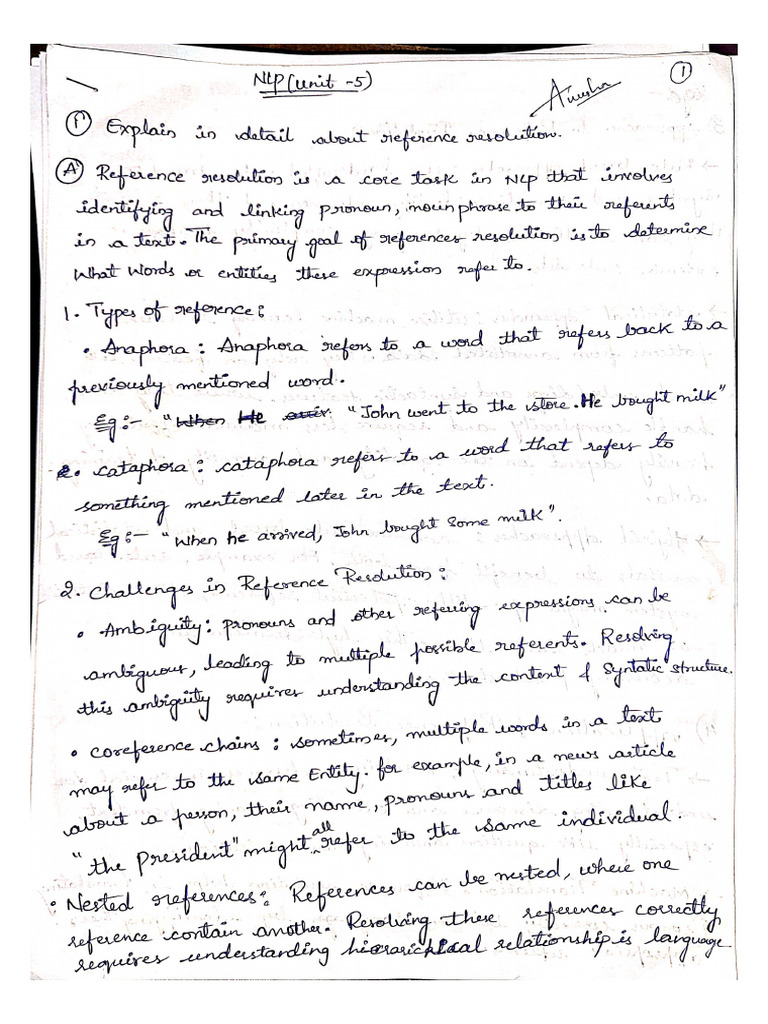 NLP (Unit -5)
Anusha
1
1) Explain in detail about reference resolution.
A) Reference resolution is a core task in NLP that involves
identifying and linking pronoun, noun phrase to their referents
in a text. The primary goal of references resolution is to determine
what words or entities these expression refer to.
1. Types of reference:
• Anaphora : Anaphora refers to a word that refers back to a
previously mentioned word.
Eg:- "When He "John went to the store. He bought milk"
• cataphora : cataphora refers to a word that refers to
something mentioned later in the text.
Eg:- "When he arrived, John bought some milk".
2. Challenges in Reference Resolution :
• Ambiguity : pronouns and other referring expressions can be
ambiguous, leading to multiple possible referents. Resolving
this ambiguity requires understanding the context & Syntatic structure.
• coreference chains : sometimes, multiple words in a text
may refer to the same Entity. for example, in a news article
about a person, their name, pronouns and titles like
"the President" might all refer to the same individual.
• Nested references : References can be nested, where one
reference contain another. Resolving these references correctly
requires understanding hierarichical relationship is language